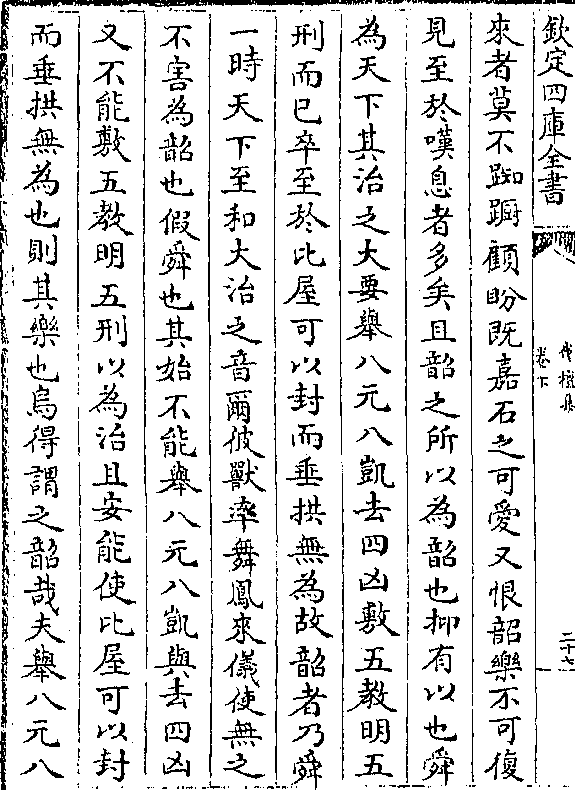 欽定四庫全書
伐檀集
卷下
二十七
來者莫不踟躕顧盼既嘉石之可愛又恨韶樂不可復
見至於嘆息者多矣且韶之所以為韶也抑有以也舜
為天下其治之大要舉八元八凱去四凶敷五教明五
刑而已卒至於比屋可以封而垂拱無為故韶者乃舜
一時天下至和大治之音爾彼獸率舞鳳來儀使無之
不害為韶也假舜也其始不能舉八元八凱與去四凶
又不能敷五教明五刑以為治且安能使比屋可以封
而垂拱無為也則其樂也烏得謂之韶哉夫舉八元八